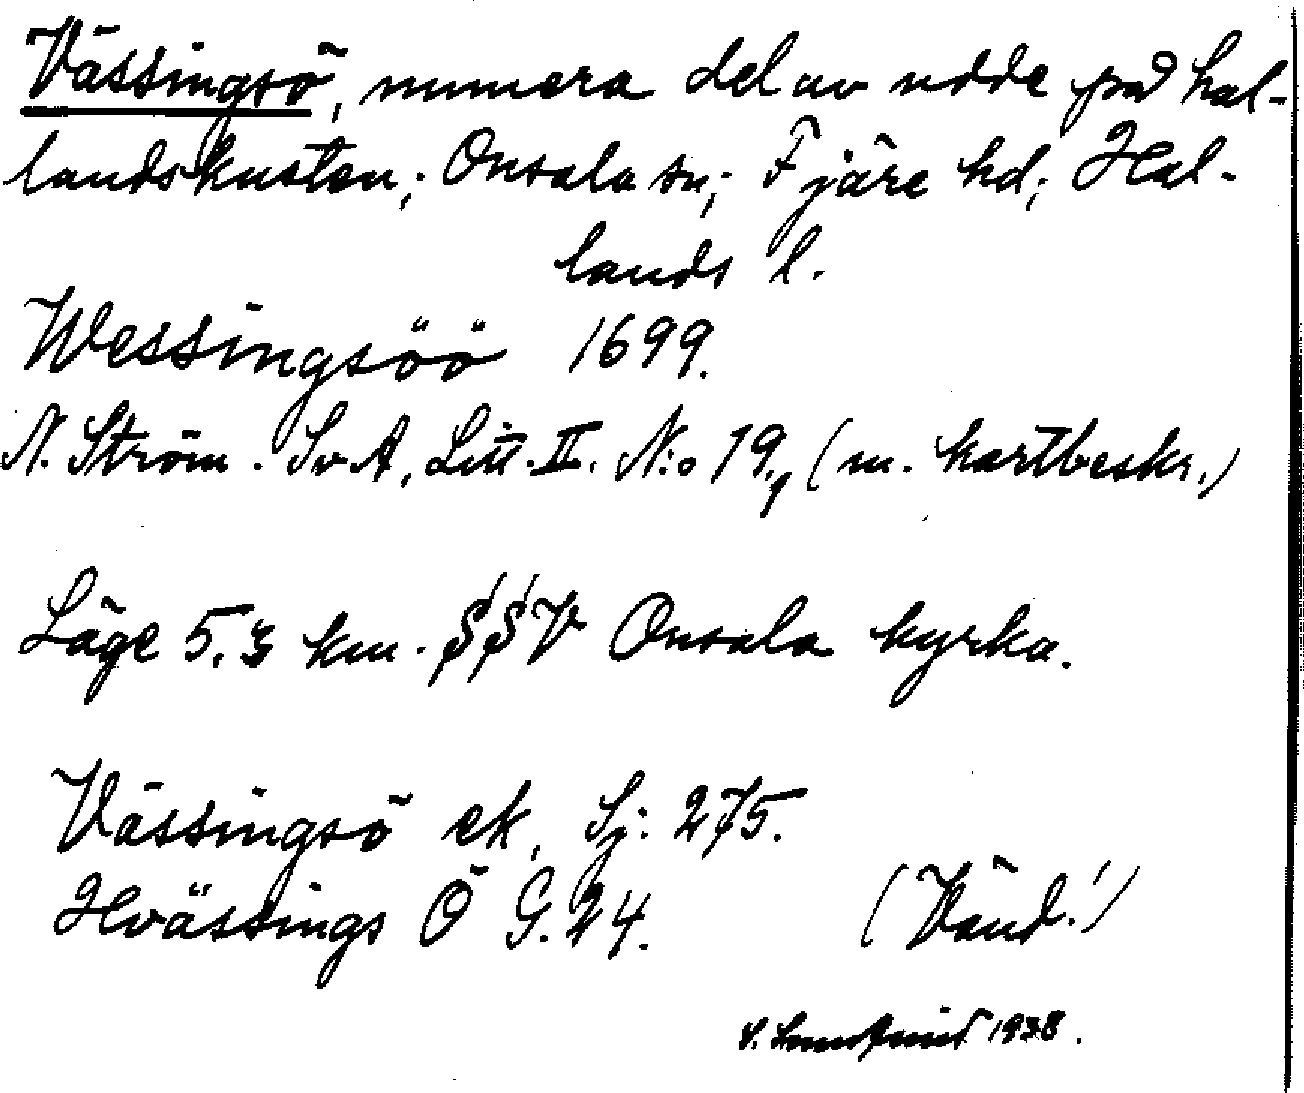 Vässingsö, numera del av udde på hal-
landskusten; Onsala sn; Fjäre hd; Hal-
lands l.
Wessingsöö 1699.
N. Ström. SvA, Litt. II. N:o 19, (m. kartbeskr.)
Läge 5.3 km. SSV Onsala kyrka.
Vässingsö ek, Sj: 275.
Hvässings Ö G. 24. (Vänd!)
1938.